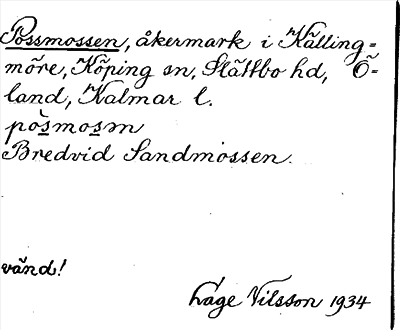 Possmossen, åkermark i Källing-
möre, Köping sn, Slättbo hd, Ö-
land, Kalmar l.
påsmosm
Bredvid Sandmossen.
vänd!
Låge Nilsson 1934